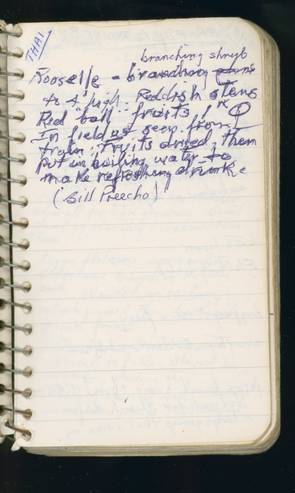 THAI
branching shrub
Rooselle - branching
to 4' high. Reddish stems
Red ball fruits 1"
In field as seen from
train. Fruits dried, then
put in boiling water to
make refreshing drink.
(Bill Preecho)